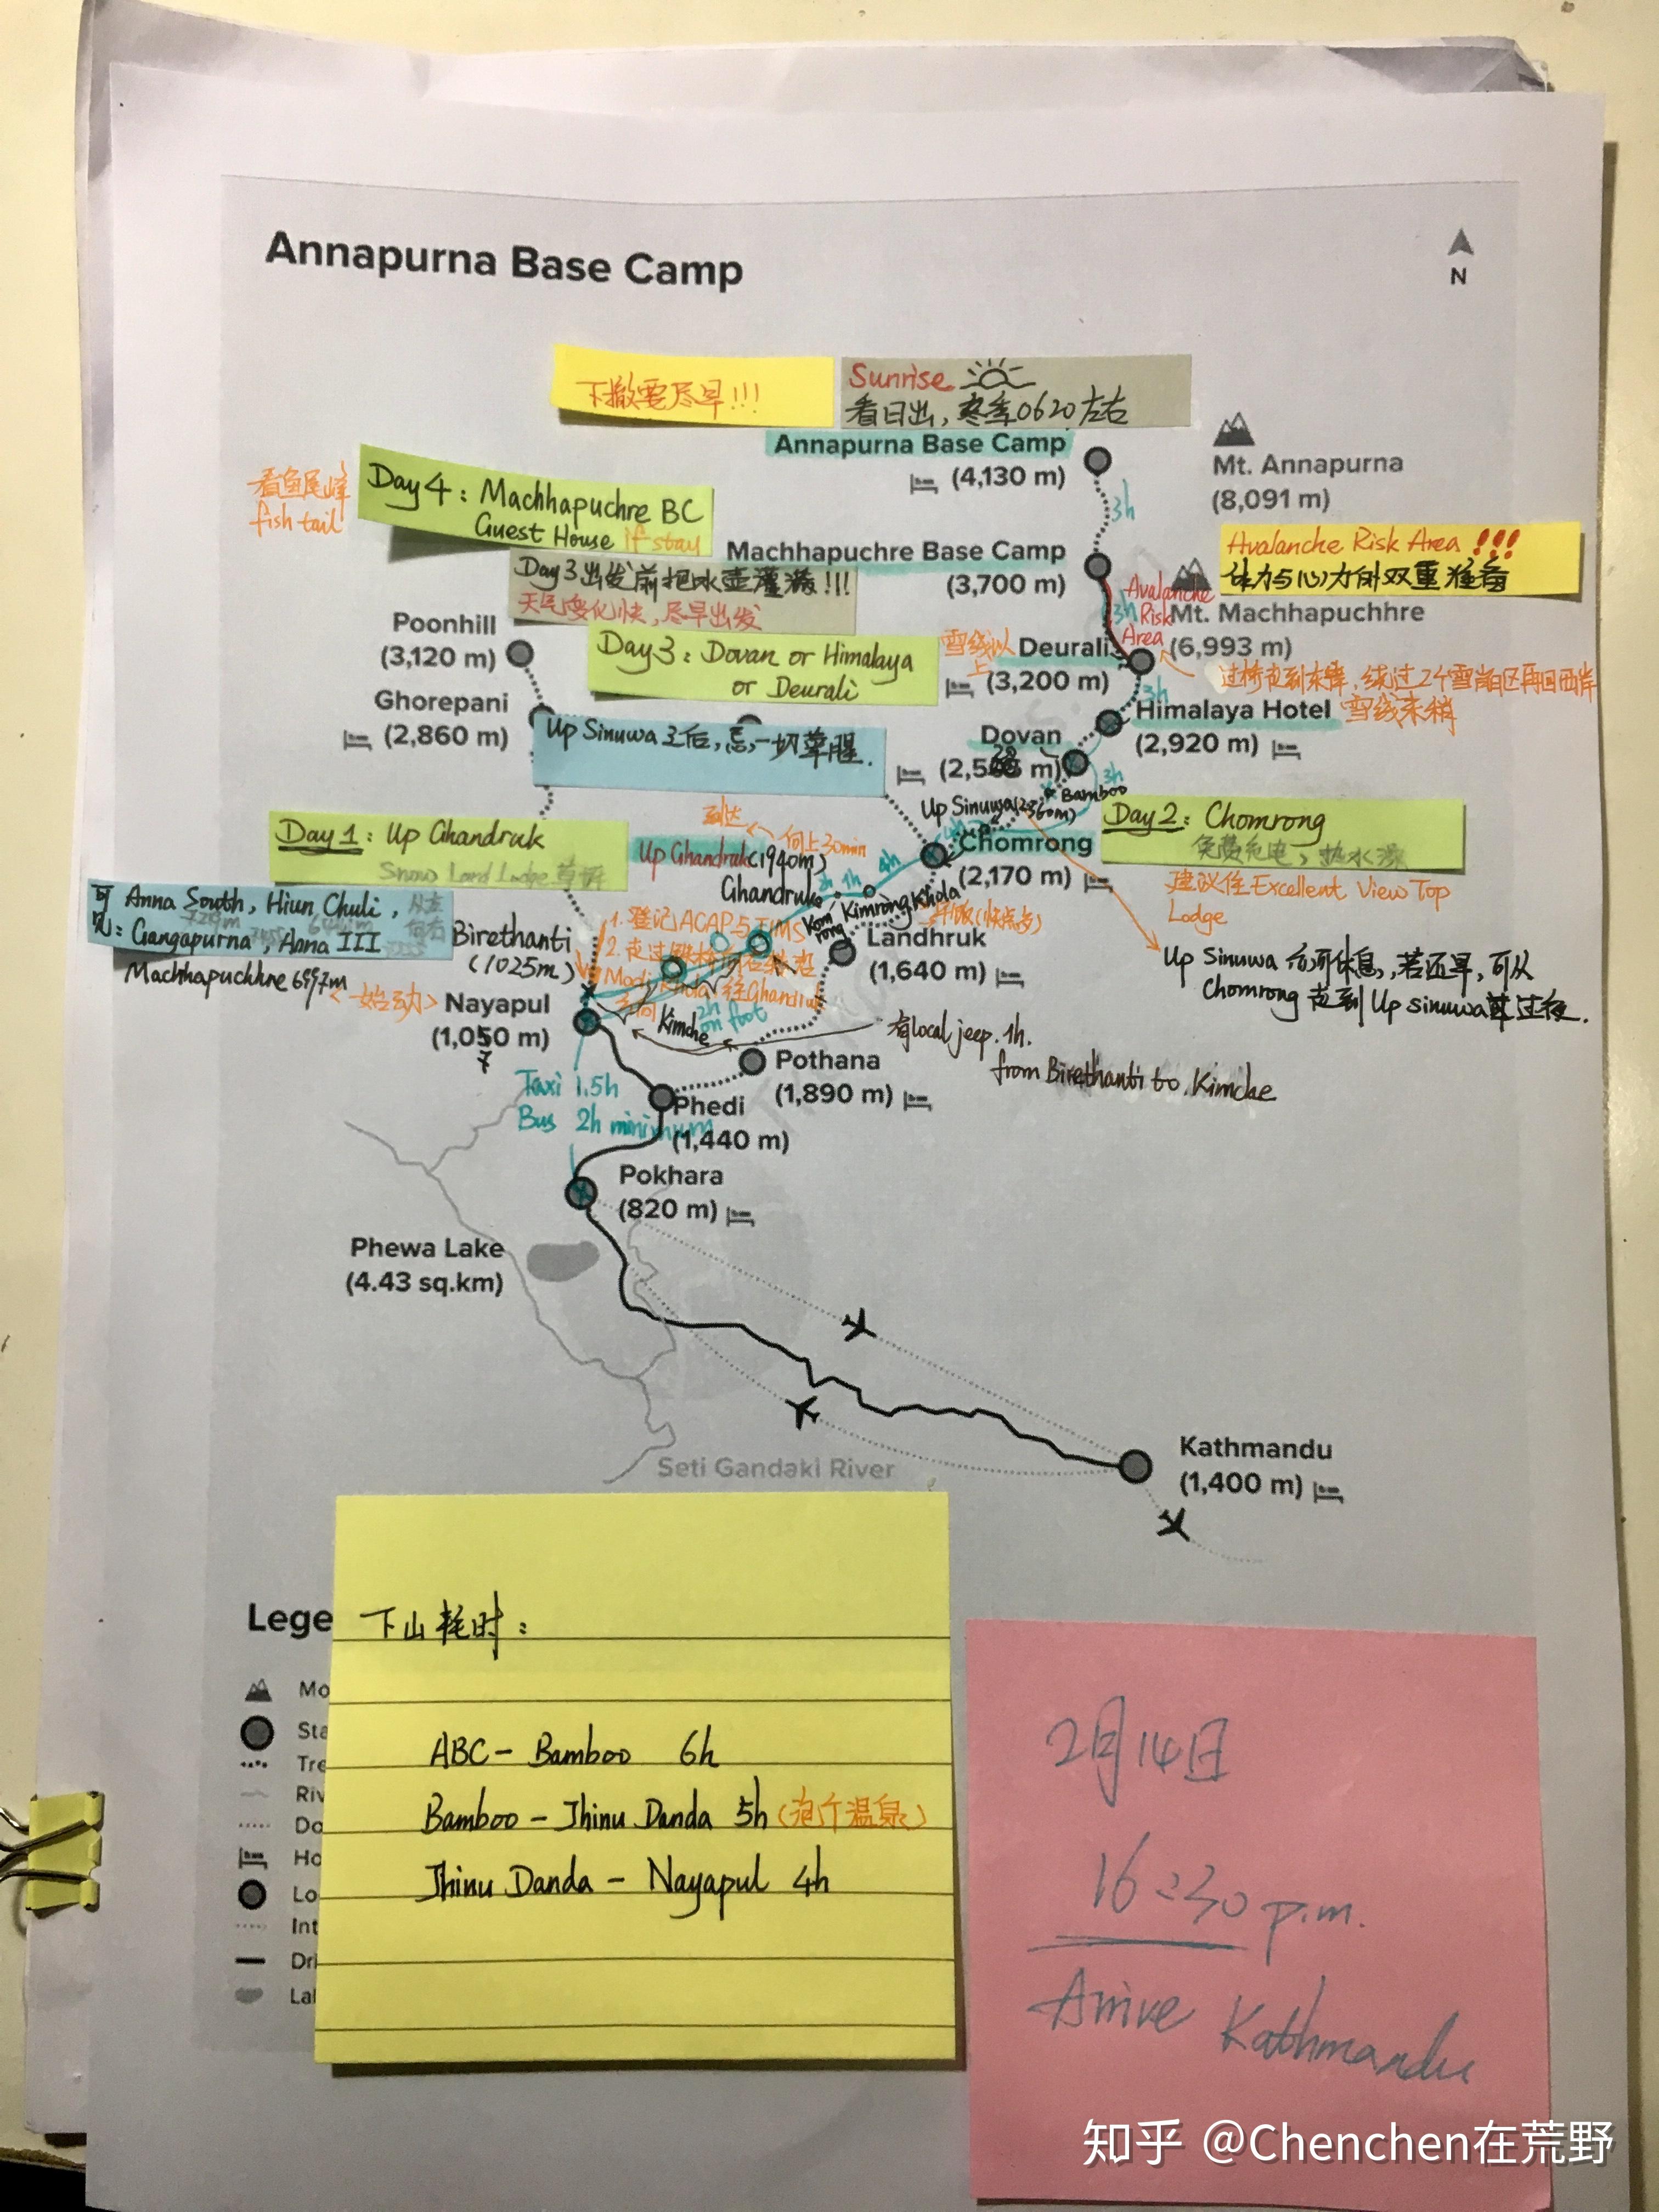 Annapurna Base Camp
N
下撤要尽早!!!
Sunrise
看日出，冬季0620左右
Annapurna Base Camp
(4,130 m)
3h
Mt. Annapurna
(8,091 m)
看鱼尾峰
fish tail
Day 4 : Machhapuchre BC
Guest House if stay
Machhapuchre Base Camp
(3,700 m)
Avalanche Risk Area !!!
体力与心力的双重准备
Day 3 出发前把水壶灌满!!!
天气变化快，尽早出发
Avalanche
Risk
Area
3h
Mt. Machhapuchhre
(6,993 m)
Poonhill
(3,120 m)
Day 3 : Dovan or Himalaya
or Deurali
雪线以上
Deurali
(3,200 m)
过桥走到东岸，绕过2个雪崩区再回西岸
3h
Ghorepani
(2,860 m)
Himalaya Hotel
雪线末梢
(2,920 m)
Up Sinuwa之后，忌一切荤腥.
Dovan
3h
Bamboo
Up Sinuwa(2360m)
Day 1 : Up Ghandruk
Snow Land Lodge
到达
向上30min
Up Ghandruk(1940m)
4h
Chomrong
(2,170 m)
Day 2 : Chomrong
免费充电，热水澡
建议住Excellent View Top
Lodge
Ghandruk
1h
Komrong
Kimrong Khola
可见: Anna South, Hiun Chuli,
从左向右
Gangapurna, Anna III
Machhapuchhre 6997m
Birethanti
(1025m)
1. 登记ACAP与TIMS
2. 走过铁桥
Modi Khola 往Ghandruk
方向
Landhruk
(1,640 m)
Up Sinuwa 后可休息，若还早，可从
Chomrong 走到 Up sinuwa 过夜.
<始动>
Nayapul
(1,050 m)
7
Kimche
2h
on foot
有local jeep. 1h.
from Birethanti to Kimche
Pothana
(1,890 m)
Taxi 1.5h
Bus 2h minimum
Phedi
(1,440 m)
Pokhara
(820 m)
Phewa Lake
(4.43 sq.km)
Seti Gandaki River
Kathmandu
(1,400 m)
Lege
Mo
Sta
Tre
Riv
Do
Ho
Lo
Int
Dri
Lal
下山耗时:
ABC - Bamboo 6h
Bamboo - Jhinu Danda 5h (泡个温泉)
Jhinu Danda - Nayapul 4h
2月14日
16:30 p.m.
Arrive Kathmandu
知乎 @Chenchen在荒野